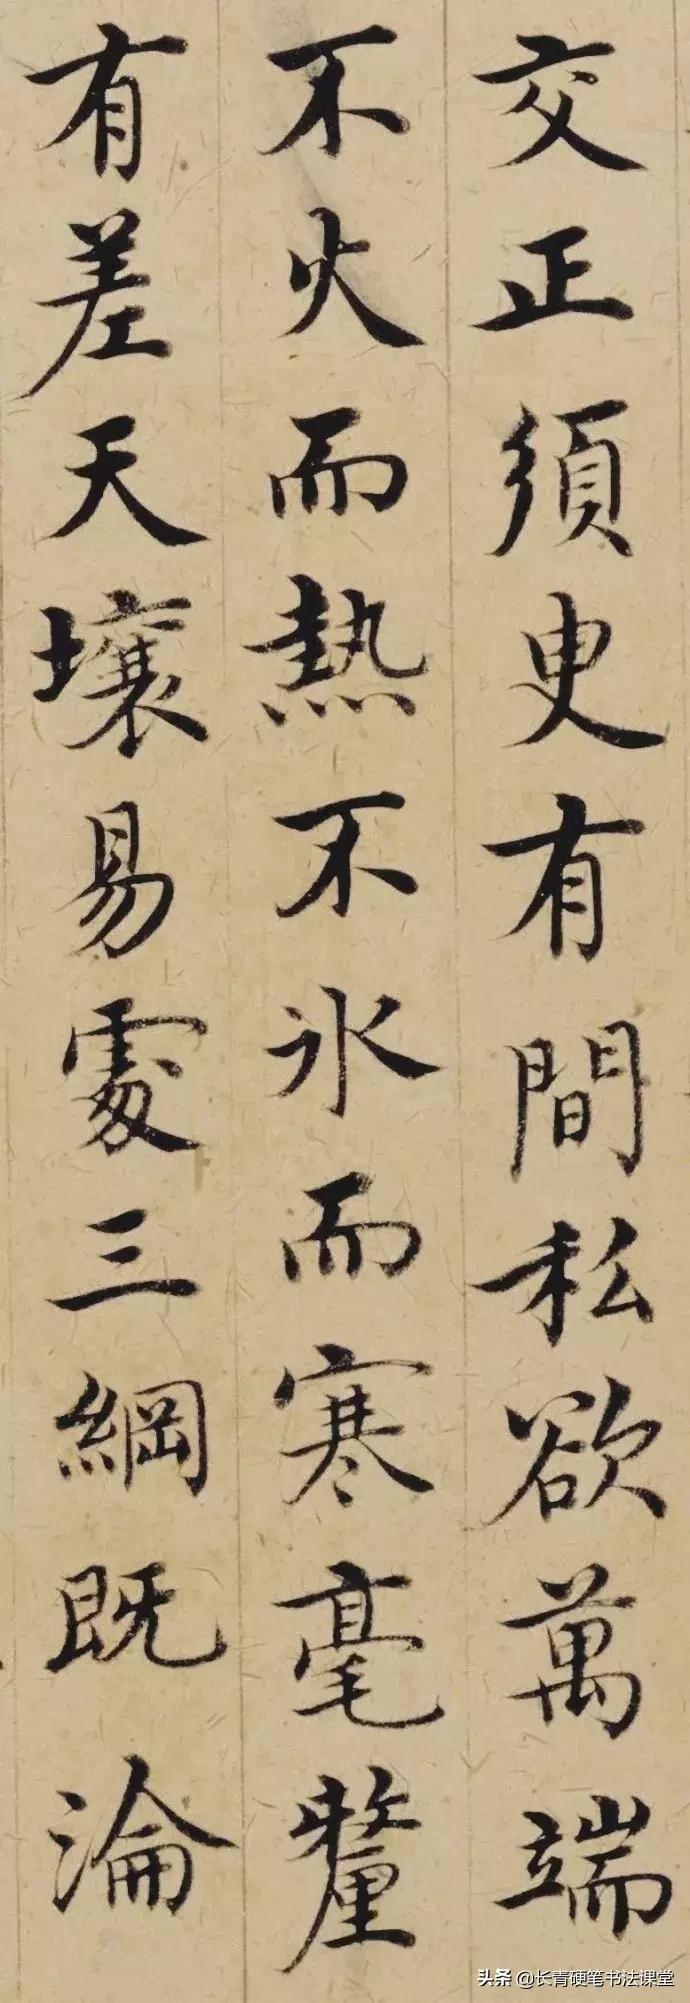 交正須臾有間私欲萬端
不火而熱不氷而寒毫釐
有差天壤易處三綱既淪
头条 @长青硬笔书法课堂